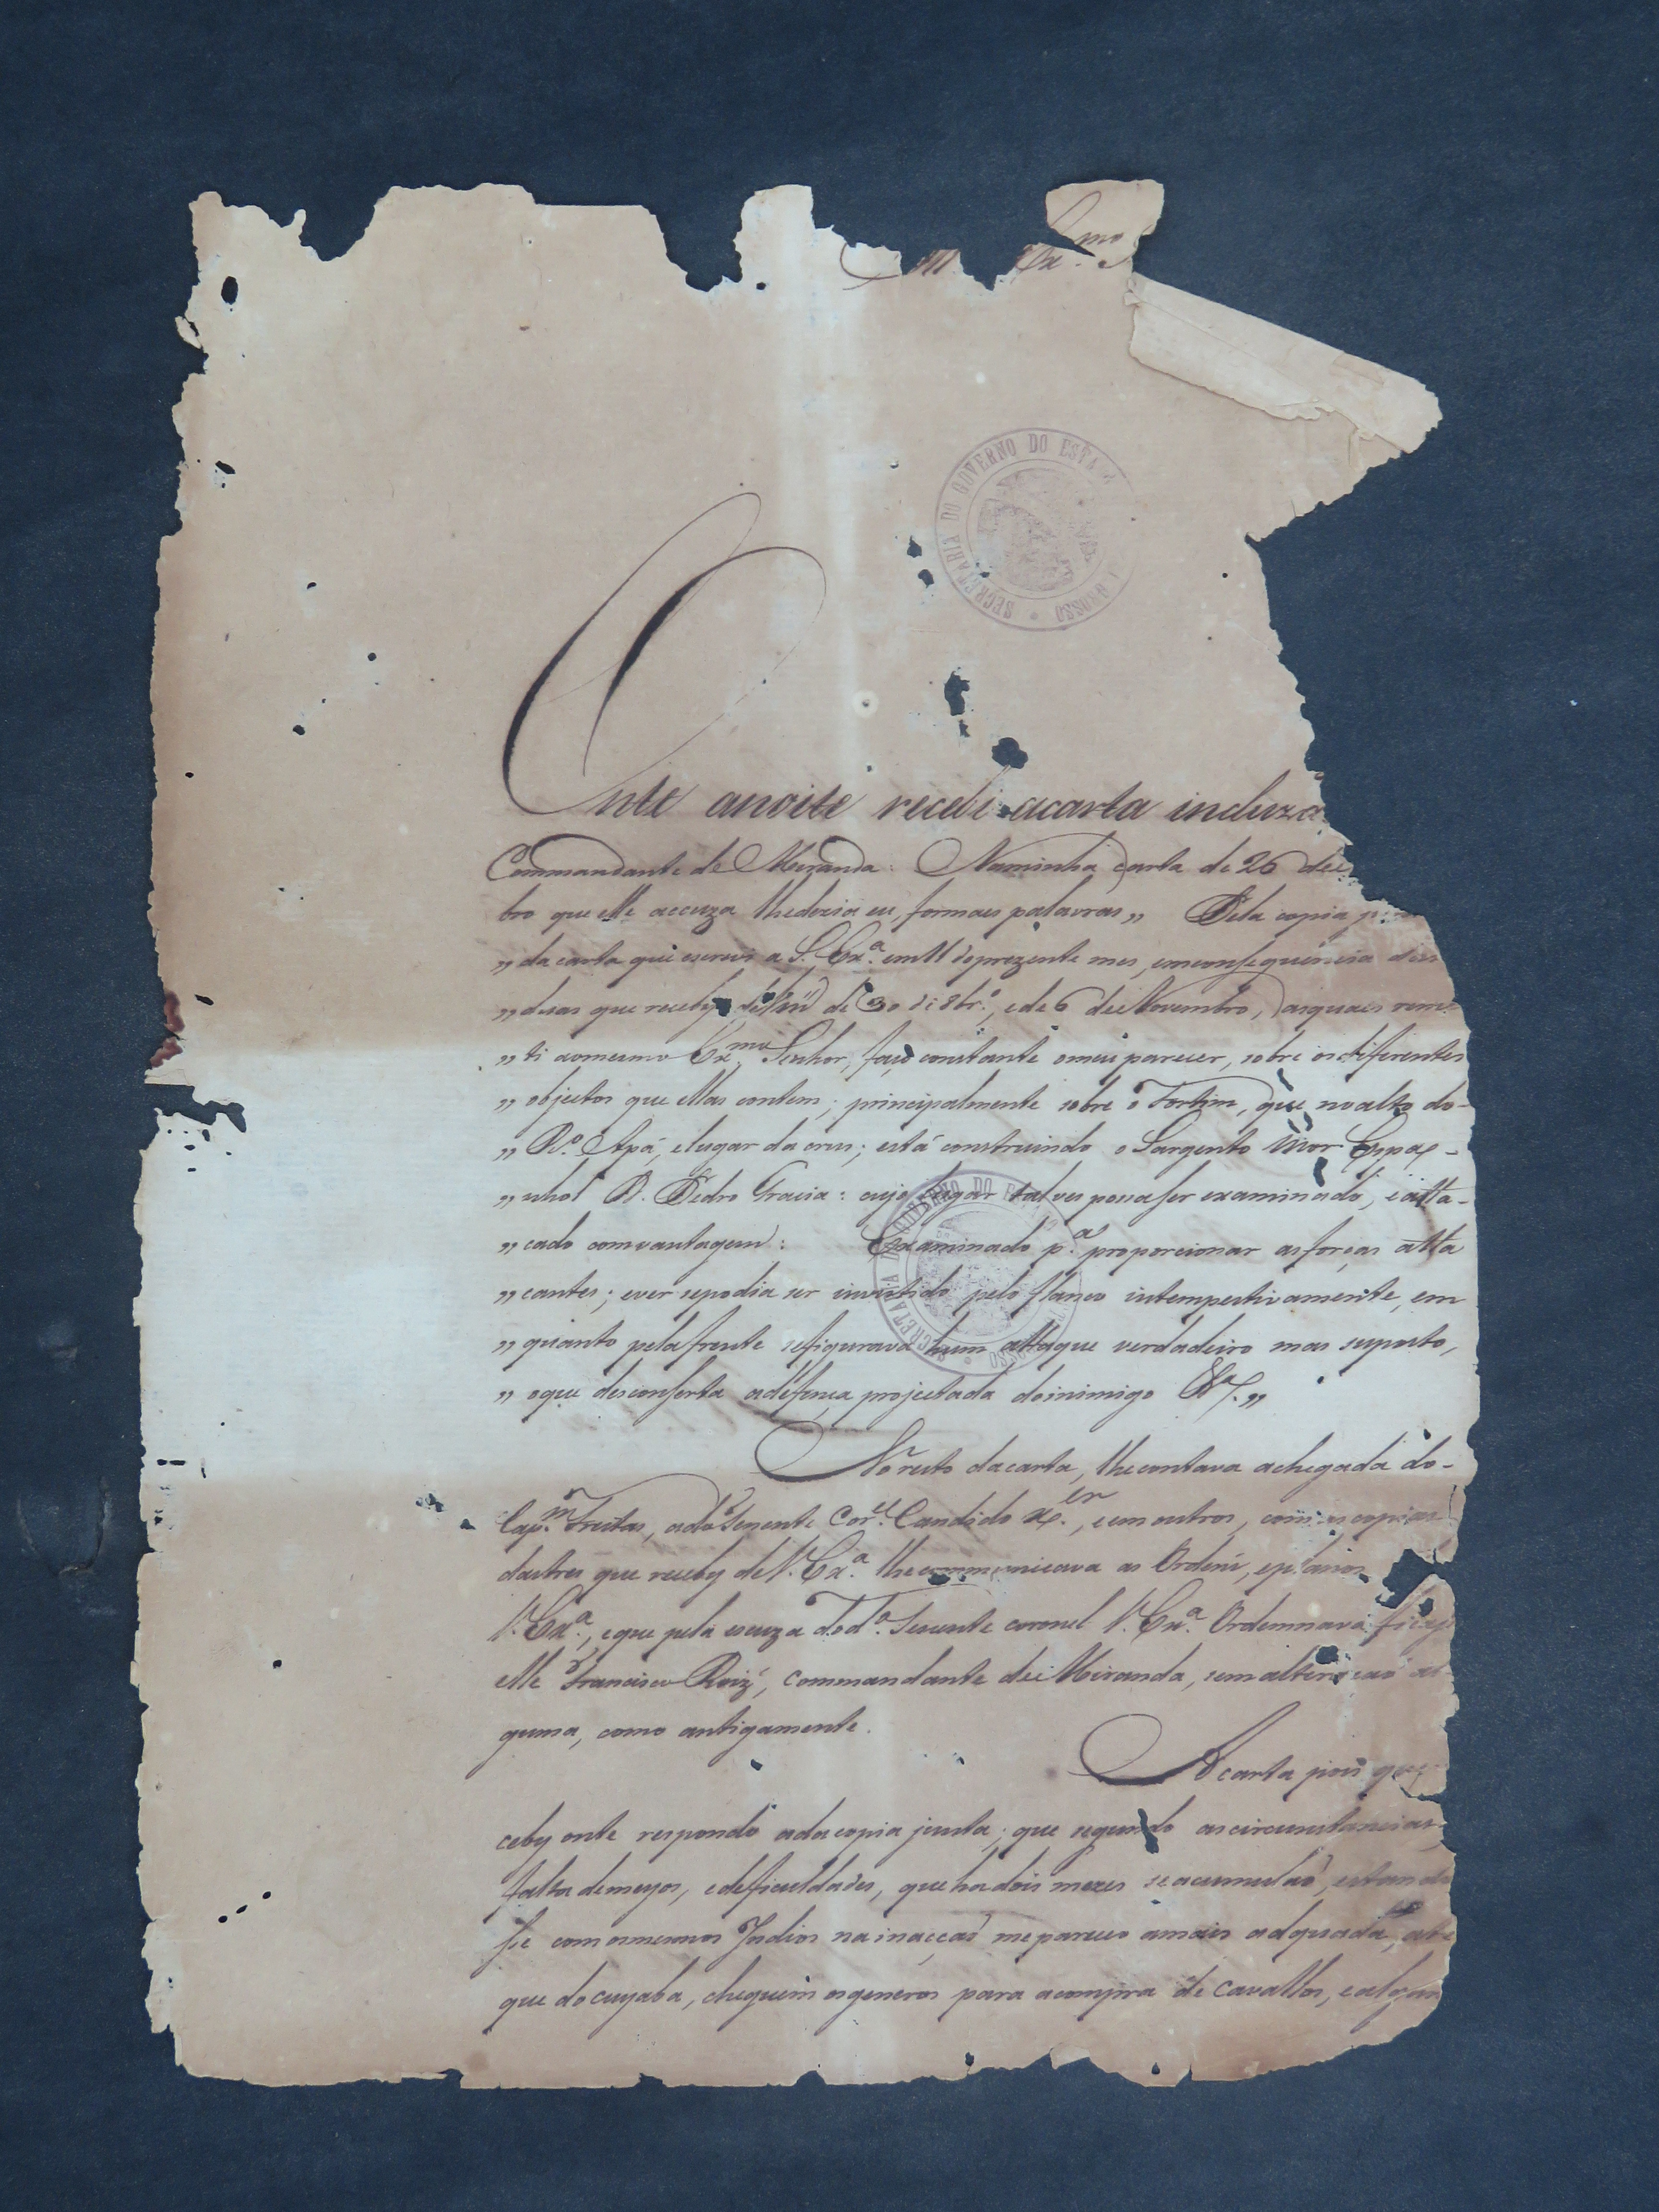 Ill.mo Ex.mo S
SECRETARIA DO GOVERNO DO ESTA GROSSO
Onte anoite recebi acarta incluza
Commandante de Miranda: Naminha carta de 26 de
bro que elle accuza lhedezia eu, formaes palavras,, Pela copia
,, da carta que escrevi a S. Ex.ª em 11 doprezente mes, emconsequencia das
,, duas que receby de 30 de 8br.º, ede 6 de Novembro, asquaes reme
,, ti aomesmo Ex.mo Senhor, faço constante omeu parecer, sobre osdiferentes
,, objectos que ellas contem; principalmente sobre o Fortim, que noalto do-
,, R.º Apá, elugar da cruz; está construindo o Sargento Mor Espa-
,, nhol D. Pedro Gracia: cujo lugar talves possaser examinado, eatta-
,, cado comvantagem: Examinado p.ª proporcionar asforças atta
,, cantes; ever sepodia ser investido pelo flanco intempestivamente, em
,, quanto pelafrente sefigurava hum attaque verdadeiro mas suposto,
,, oque desconserta adefença projectada doinimigo &ª.,,
SECRETARIA DO GOVERNO DO E GROSSO
No resto dacarta, lhecontava achegada do-
Cap.m Freitas, ado Tenente Cor.el Candido X.er, ecom outros, com as copias
dastres que receby de V. Ex.ª lhecommunicava as Ordens,
V. Ex.ª, eque pela escuza dod.º Tenente coronel V. Ex.ª Ordennava
elle Francisco Roiz', commandante de Miranda, sem alteração al-
guma, como antigamente.
Acarta pois que
ceby onte respondo adacopia junta; que segundo ascircunstancias,
falta demeyos, edeficuldades, que ha dois mezes seacumulão, estando
se com osmesmos Indios na inacção mepareceo amais adquada, ate
que docuyaba, cheguem osgeneros para acompra de cavallos, ealgun